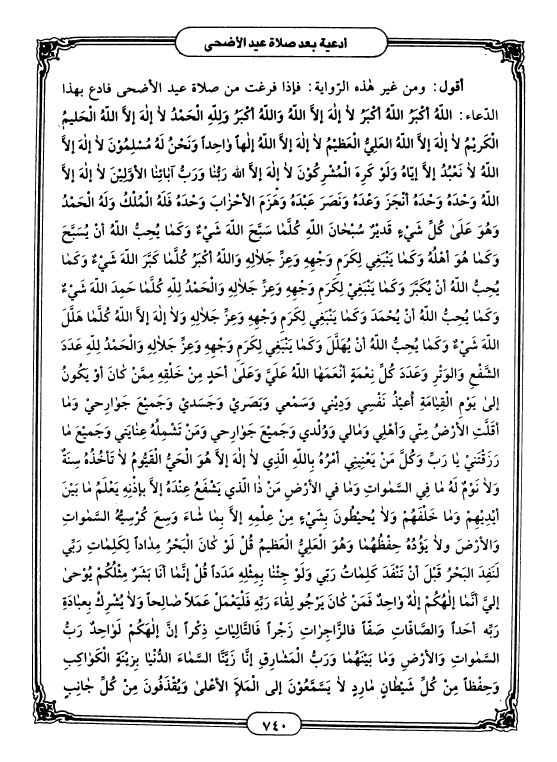 أدعية بعد صلاة عيد الأضحى
أقول: ومن غير هٰذه الرّواية: فإذا فرغت من صلاة عيد الأضحى فادع بهذا
الدّعاء: اللّهُ أكْبَرُ اللّهُ أكْبَرُ لاٰ إلٰهَ إلاَّ اللّهُ وَاللّهُ أكْبَرُ وَلِلّهِ الْحَمْدُ لاٰ إلٰهَ إلاَّ اللّهُ الْحَليمُ
الْكَريْمُ لاٰ إلٰهَ إلاَّ اللّهُ العَليُّ الْعَظيْمُ لاٰ إلٰهَ إلاَّ اللّهُ إلٰهاً وٰاحِداً وَنَحْنُ لَهُ مُسْلِمُوْنَ لاٰ إلٰهَ إلاَّ
اللّهُ لاٰ نَعْبُدُ إلاَّ إيّاهُ وَلَوْ كَرِهَ الْمُشْرِكُوْنَ لاٰ إلٰهَ إلاَّ الله رَبُّنٰا وَرَبُّ آبٰائِنْا الأوَّليْنَ لاٰ إلٰهَ إلاَّ
اللّهُ وَحْدَهُ وَحْدَهُ أنْجَزَ وَعْدَهُ وَنَصَرَ عَبْدَهُ وَهَزَمَ الأحْزٰابَ وَحْدَهُ فَلَهُ الْمُلْكُ وَلَهُ الْحَمْدُ
وَهُوَ عَلَىٰ كُلِّ شَيْءٍ قَديْرٌ سُبْحٰانَ اللّهِ كُلَّمٰا سَبَّحَ اللّهَ شَيْءٌ وَكَمٰا يُحِبُّ اللّهُ أنْ يُسَبَّحَ
وَكَمٰا هُوَ أهْلُهُ وَكَمٰا يَنْبَغِي لِكَرَمِ وَجْهِهِ وَعِزِّ جَلاٰلِهِ وَاللّهُ أكْبَرُ كُلَّمٰا كَبَّرَ اللّهَ شَيْءٌ وَكَمٰا
يُحِبُّ اللّهُ أنْ يُكَبَّرَ وَكَمٰا يَنْبَغِيْ لِكَرَمِ وَجْهِهِ وَعِزِّ جَلاٰلِهِ وَالْحَمْدُ لِلّهِ كُلَّمٰا حَمِدَ اللّهَ شَيْءٌ
وَكَمٰا يُحِبُّ اللّهُ أنْ يُحْمَدَ وَكَمٰا يَنْبَغي لِكَرَمِ وَجْهِهِ وَعِزِّ جَلاٰلِهِ وَلاٰ إلٰهَ إلاَّ اللّهُ كُلَّمٰا هَلَّلَ
اللّهَ شَيْءٌ وَكَمٰا يُحِبُّ اللّهُ أنْ يُهَلَّلَ وَكَمٰا يَنْبَغي لِكَرَمِ وَجْهِهِ وَعِزِّ جَلاٰلِهِ وَالْحَمْدُ لِلّهِ عَدَدَ
الشَّفْعِ وَالوَتْرِ وَعَدَدَ كُلِّ نِعْمَةٍ أنْعَمَهٰا اللّهُ عَلَيَّ وَعَلىٰ أحَدٍ مِنْ خَلْقِهِ مِمَّنْ كٰانَ أوْ يَكُوْنُ
إلىٰ يَوْمِ الْقِيٰامَةِ أُعيْذُ نَفْسي وَديْني وَسَمْعي وَبَصَريْ وَجَسَديْ وَجَميْعَ جَوٰارِحيْ وَمٰا
أقَلَّتِ الأرْضُ مِنّي وَأهْلي وَمٰالي وَوُلْدي وَجَميْعَ جَوٰارِحي وَمَنْ تَشْمِلُهُ عِنٰايَتي وَجَميْعَ مٰا
رَزَقْتَنيْ يٰا رَبِّ وَكُلَّ مَنْ يَعْنِيْني أمْرُهُ بِاللّهِ الَّذي لاٰ إلٰهَ إلاَّ هُوَ الْحَيُّ الْقَيُّومُ لاٰ تَأخُذُهُ سِنَةٌ
وَلاٰ نَوْمٌ لَهُ مٰا فِي السَّمٰوٰاتِ وَمٰا في الأرْضِ مَنْ ذٰا الَّذي يَشْفَعُ عِنْدَهُ إلاَّ بِإذْنِهِ يَعْلَمُ مٰا بَيْنَ
أيْدِيْهِمْ وَمٰا خَلْفَهُمْ وَلاٰ يُحيْطُونَ بِشَيْءٍ مِنْ عِلْمِهِ إلاَّ بِمٰا شٰاءَ وَسِعَ كُرْسِيُّهُ السَّمٰوٰاتِ
وَالأرْضَ ولاٰ يَؤُدُهُ حِفْظُهُمٰا وَهُوَ الْعَليُّ الْعَظيمُ قُلْ لَوْ كٰانَ الْبَحْرُ مِدٰاداً لِكَلِمٰاتِ رَبِّي
لَنَفِدَ الْبَحْرُ قَبْلَ أنْ تَنْفَدَ كَلِمٰاتُ رَبّي وَلَوْ جِئْنٰا بِمِثْلِهِ مَدَداً قُلْ إنَّمٰا أنَا بَشَرٌ مِثْلُكُمْ يُوْحىٰ
إليَّ أنَّمٰا إلٰهُكُمْ إلٰهٌ وٰاحِدٌ فَمَنْ كٰانَ يَرْجُو لِقٰاءَ رَبِّهِ فَلْيَعْمَلْ عَمَلاً صٰالِحاً وَلاٰ يُشْرِكْ بِعِبٰادَةِ
رَبِّه أحَداً وَالصّٰافّٰاتِ صَفّاً فالزّٰاجِرٰاتِ زَجْراً فَالتّٰالِيٰاتِ ذِكْراً إنَّ إلٰهَكُمْ لَوٰاحِدٌ رَبُّ
السَّمٰوٰاتِ وَالأرْضِ وَمٰا بَيْنَهُمٰا وَرَبُّ الْمَشٰارِقِ إنّا زَيَّنّا السَّمٰاءَ الدُّنْيٰا بِزِيْنَةٍ الْكَوٰاكِبِ
وَحِفْظاً مِنْ كُلِّ شَيْطٰانٍ مٰارِدٍ لاٰ يَسَّمَّعُوْنَ إلى الْمَلأ الأعْلىٰ وَيُقْذَفُونَ مِنْ كُلِّ جٰانِبٍ
٧٤٠